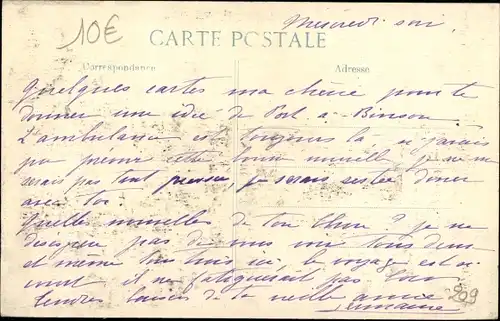 10€
Mercredi soir
CARTE POSTALE
Correspondance
Adresse
Quelques cartes ma chérie pour te
donner une idée de Port-à-Binson.
L'ambulance est toujours là si j'avais
pu prévoir cette bonne nouvelle je ne
serais pas tant pressée, je serais restée dîner
avec toi
Quelles nouvelles de ton ? je ne
désespère pas de vous voir tous deux
et même tous trois ici. le voyage est si
court il ne fatiguerait pas
tendres baisers de ta vieille amie
Germaine
209